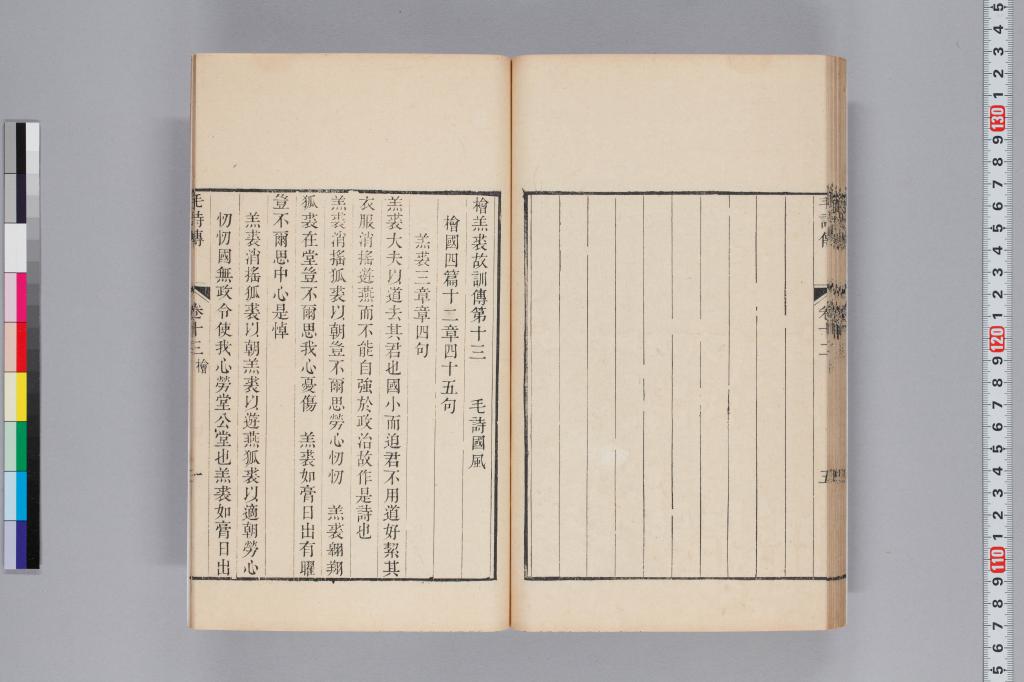 毛詩傳
卷十二
五
檜羔裘故訓傳第十三 毛詩國風
檜國四篇十二章四十五句
羔裘三章章四句
羔裘大夫以道去其君也國小而迫君不用道好絜其
衣服消搖遊燕而不能自強於政治故作是詩也
羔裘消搖狐裘以朝豈不爾思勞心忉忉 羔裘翱翔
狐裘在堂豈不爾思我心憂傷 羔裘如膏日出有曜
豈不爾思中心是悼
羔裘消搖狐裘以朝羔裘以遊燕狐裘以適朝勞心
忉忉國無政令使我心勞堂公堂也羔裘如膏日出
毛詩傳
卷十三 檜
一
5
4
3
2
1
130
9
8
7
6
5
4
3
2
1
120
9
8
7
6
5
4
3
2
1
110
9
8
7
6
5